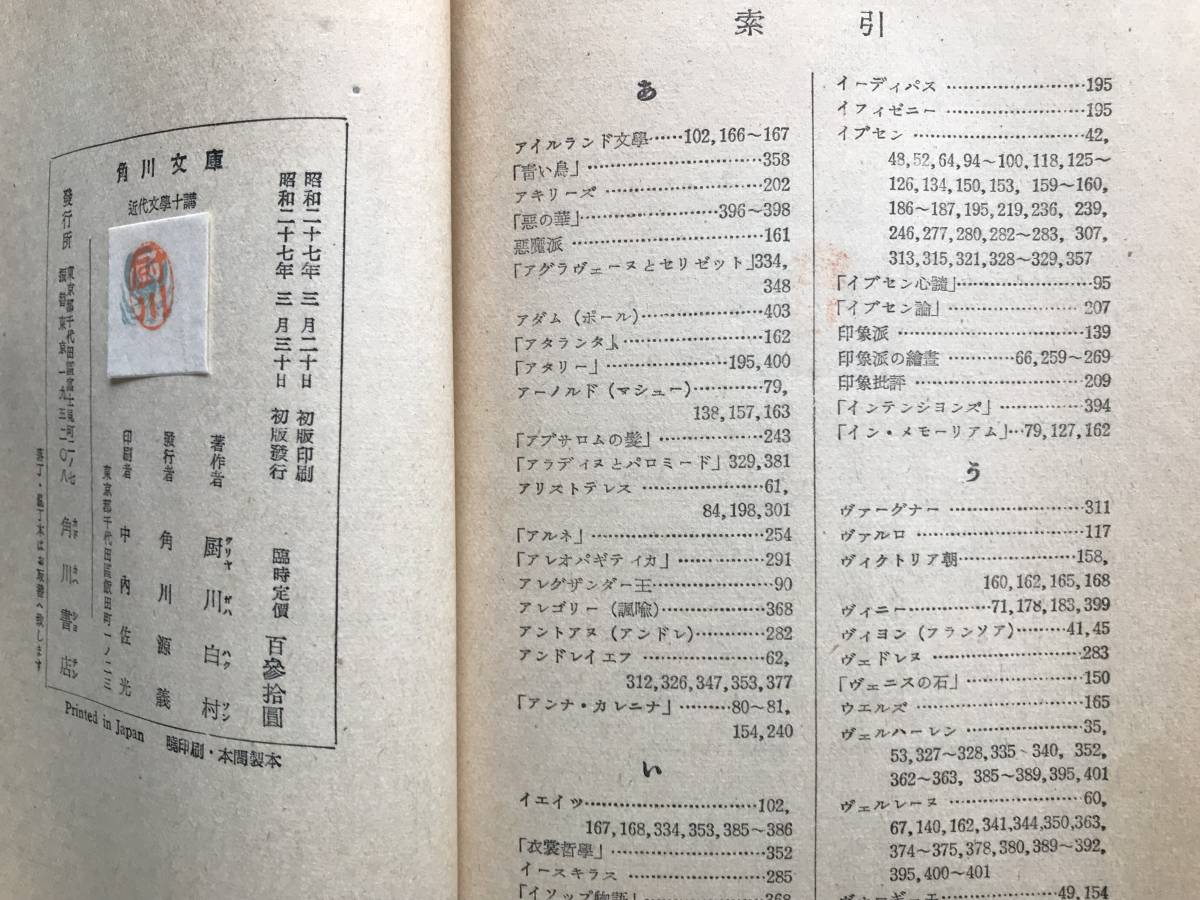 角川文庫
近代文學十講
昭和二十七年三月二十日 初版印刷
昭和二十七年三月三十日 初版發行
臨時定價 百參拾圓
著作者 厨川白村
クリヤ ガハ ハク ソン
發行者 角川源義
印刷者 中內佐光
東京都千代田區飯田町一ノ二三
發行所
東京都千代田區富士見町二ノ七
振替東京一九五二〇八
角川書店
カド カハ ショ テン
落丁・亂丁本はお取替へ致します
Printed in Japan 曉印刷・本間製本
厨川
索引
あ
アイルランド文學……102,166〜167
「靑い鳥」……358
アキリーズ……202
「惡の華」……396〜398
惡魔派……161
「アグラヴェーヌとセリゼット」334,
348
アダム(ポール)……403
「アタランタ」……162
「アタリー」……195,400
アーノルド(マシュー)……79,
138,157,163
「アブサロムの髮」……243
「アラディヌとパロミード」329,381
アリストテレス……61,
84,198,301
「アルネ」……254
「アレオパギティカ」……291
アレグザンダー王……90
アレゴリー(諷喩)……368
アントアヌ(アンドレ)……282
アンドレイエフ……62,
312,326,347,353,377
「アンナ・カレニナ」……80〜81,
154,240
い
イエイツ……102,
167,168,334,353,385〜386
「衣裳哲學」……352
イースキラス……285
「イソップ物語」……368
イーディパス……195
イフィゼニー……195
イプセン……42,
48,52,64,94〜100,118,125〜
126,134,150,153, 159〜160,
186〜187,195,219,236, 239,
246,277,280,282〜283, 307,
313,315,321,328〜329,357
「イプセン心髓」……95
「イプセン論」……207
印象派……139
印象派の繪畫……66,259〜269
印象批評……209
「インテンションズ」……394
「イン・メモーリアム」…79,127,162
う
ヴァーグナー……311
ヴァルロ……117
ヴィクトリア朝……158,
160,162,165,168
ヴィニー……71,178,183,399
ヴィヨン(フランソア)……41,45
ヴェドレヌ……283
「ヴェニスの石」……150
ウエルズ……165
ヴェルハーレン……35,
53,327〜328,335〜340, 352,
362〜363, 385〜389,395,401
ヴェルレーヌ……60,
67,140,162,341,344,350,363,
374〜375,378,380,389〜392,
395,400〜401
49,154